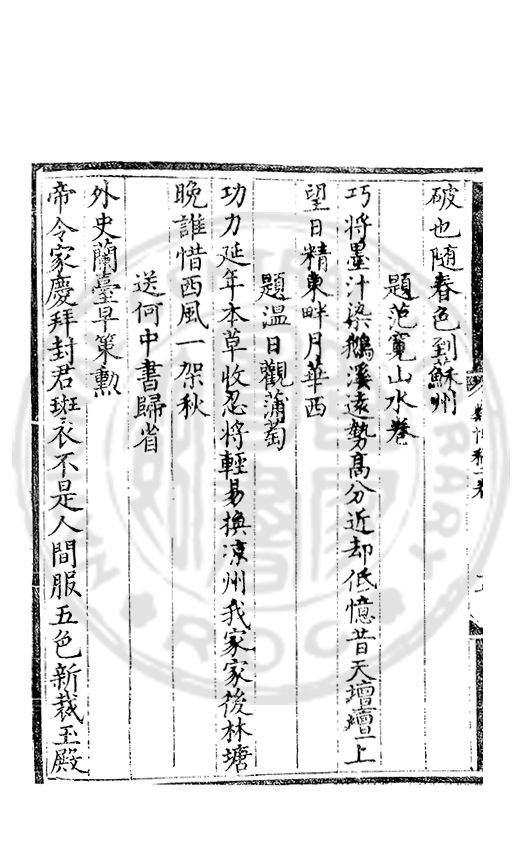 破也隨春色到蘇州
題范寬山水卷
巧將墨汁染鵝溪遠勢髙分近却低憶昔天壇壇上
望日精東畔月華西
題溫日觀蒲萄
功力延年本草收忍將輕易換涼州我家家後林塘
晚誰惜西風一架秋
送何中書歸省
外史蘭臺早策勲
帝令家慶拜封君斑衣不是人間服五色新裁玉殿